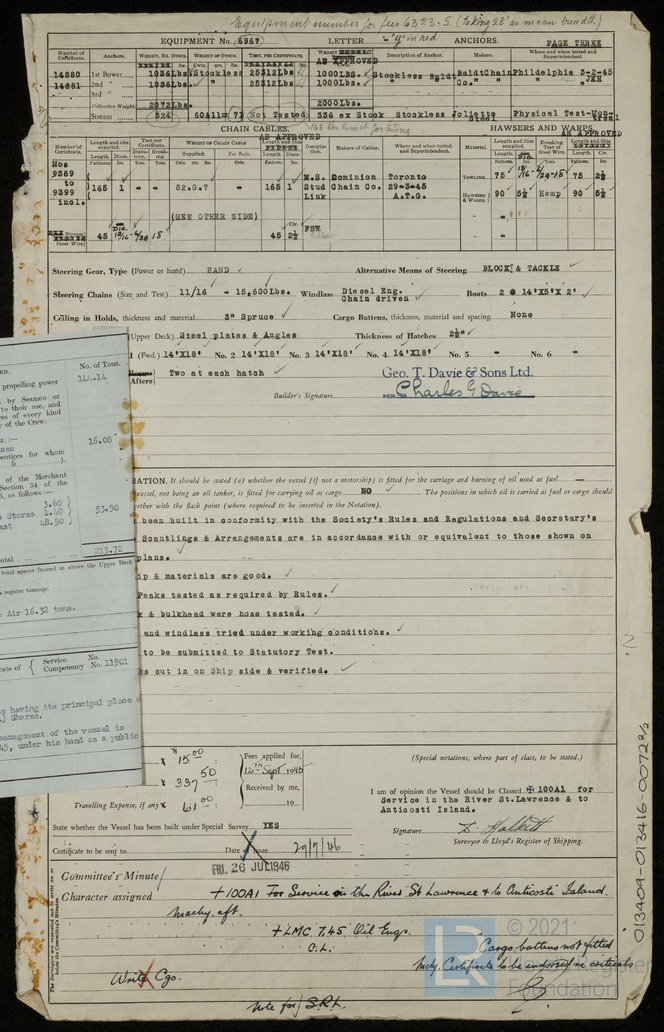 Equipment number for fees 6323.5 (taking 28' as mean breadth)
EQUIPMENT No. 6967 LETTER - "g" in red ANCHORS. PAGE THREE
Number of Certificate. Anchors. WEIGHT, EX. STOCK WEIGHT OF STOCK. TEST, PER CERTIFICATE WEIGHT AS APPROVED Description of Anchor. Makers. Where and when tested and Superintendent.
14880 1st Bower 1036Lbs. Stockless 25312Lbs 1000LBS. Stockless Baldt BaldtChain Phildelphia 3-2-45
14881 2nd " 1036Lbs. " 25312Lbs 1000Lbs. " Co." JKH
3rd "
Collective Weight. 2072Lbs. 2000Lbs.
Stream 324 Not Tested 336 ex Stock Stockless Joliette Steel Physical Test-Mon
CHAIN CABLES. HAWSERS AND WARPS.
AS APPROVED
Number of Certificate. Length and size supplied. Test per Certificate WEIGHT OF CHAIN CABLE Length and size Makers of Cables. Where and when tested, and Superintendent. Material. Length and size supplied. Breaking Test of Steel Wire. Length and size
Nos
9589
to
9399
incl. 165 1 - - 82.0.7 - 165 1 M.S. Stud Link Dominion Chain Co. Toronto 29-3-45 A.T.G.
TOWLINE 75 75 2½
HAWSERS & WARPS. 90 5½ Hemp 90 5½
(SEE OTHER SIDE)
Steel Wire) 45 15 45 2½ FSW
Steering Gear, Type (Power or hand) HAND Alternative Means of Steering BLOCK & TACKLE
Steering Chains (Size and Test) 11/16 - 15,600Lbs. Windlass Diesel Eng. Chain driven Boats 2 @ 14'X5'X 2'
Ceiling in Holds, thickness and material 3" Spruce Cargo Battens, thickness, material and spacing None
(Upper Deck) Steel plates & Angles Thickness of Hatches 2½"
1 (Fwd.) 14'X18' No. 2 14'X18' No. 3 14'X18' No. 4 14'X18' No. 5 - No. 6 -
Afters) Two at each hatch
Geo. T. Davie & Sons Ltd.
Builder's Signature. PER Charles G Davie
RATION. It should be stated (a) whether the vessel (if not a motorship) is fitted for the carriage and burning of oil used as fuel -
vessel, not being an oil tanker, is fitted for carrying oil as cargo NO The positions in which oil is carried as fuel or cargo should
ether with the flash point (where required to be inserted in the Notation).
been built in conformity with the Society's Rules and Regulations and Secretary's
Scantlings & Arrangements are in accordance with or equivalent to those shown on
plans.
ip & materials are good.
Peaks tested as required by Rules.
k & bulkhead were hose tested.
and windlass tried under working conditions.
to be submitted to Statutory Test.
ks cut in on Ship side & verified.
No. of Tons.
144.14
propelling power
by Seamen or
to their use, and
res of every kind
y of the Crew.
16.08
entices for whom
6 ).
of the Merchant
Section 54 of the
, as follows:-
3.60
Stores 1.40
ast 48.50
53.50
otal 213.72
total spaces framed in above the Upper Deck
register tonnage.
Air 16.32 tons.
ate of { Service No.
Competency No. 11901
having its principal place
) Shares.
anagement of the vessel is
45, under his hand as a public
15.00
337.50
Travelling Expense, if any 61.00
Fees applied for, 12th Sept 1945
Received by me,
19
(Special notations, where part of class, to be stated.)
I am of opinion the Vessel should be Classed ✠ 100A1 for
Service in the River St.Lawrence & to
Anticosti Island.
State whether the Vessel has been built under Special Survey YES
Signature
Surveyor to Lloyd's Register of Shipping.
Certificate to be sent to Date of issue 29/7/46
Committee's Minute FRI. 26 JUL 1946
Character assigned +100A1 For Service on the River St Lawrence & to Anticosti Island.
Machy. aft.
+LMC 7.45 Oil Engs.
O.L.
Cargo battens not fitted
Mchy. Certificate to be endorsed re criticals
Write Cgo.
Note for S.R.L.
The Surveyors are requested not to write on or below the Committee's Minute.
013409-013416-0072 2/2
LR
© 2021
Lloyd's Register
Foundation